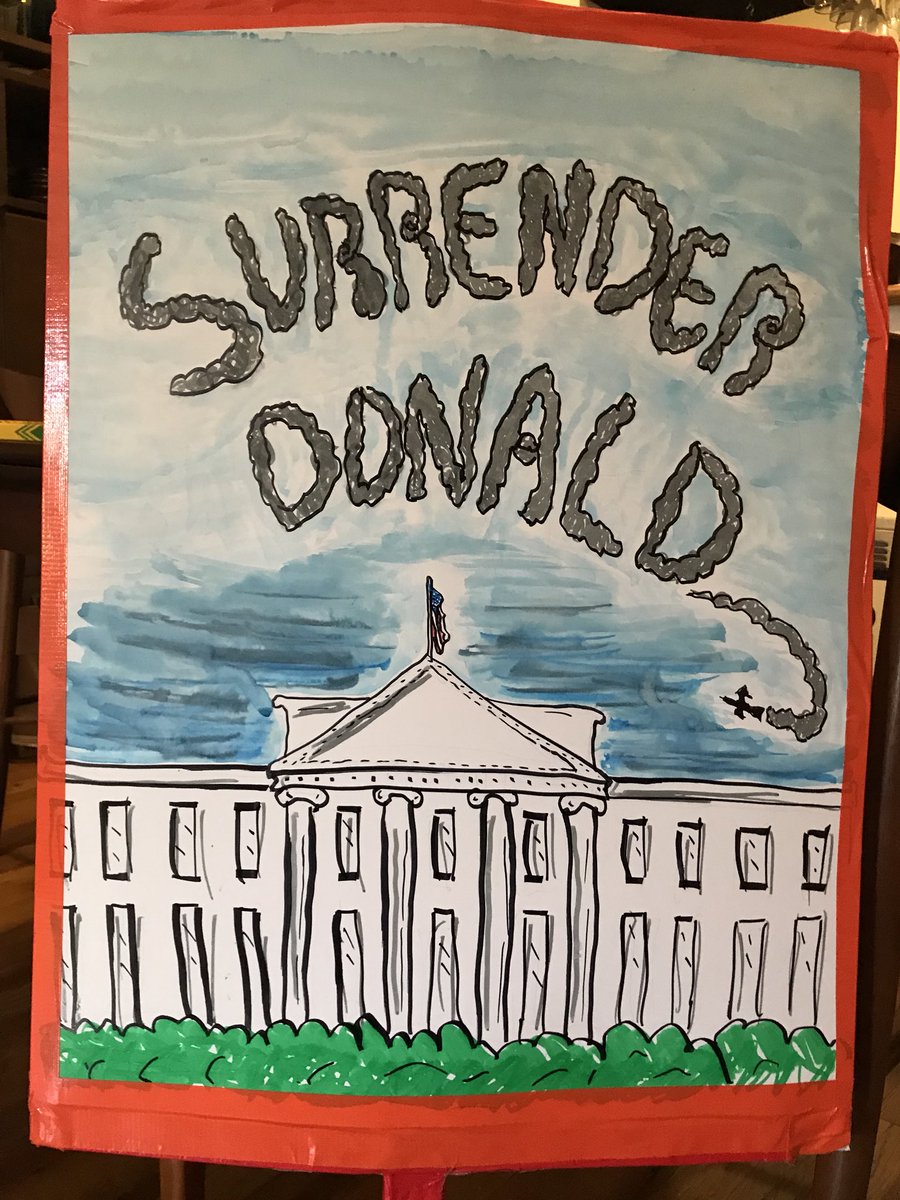 SURRENDER
DONALD